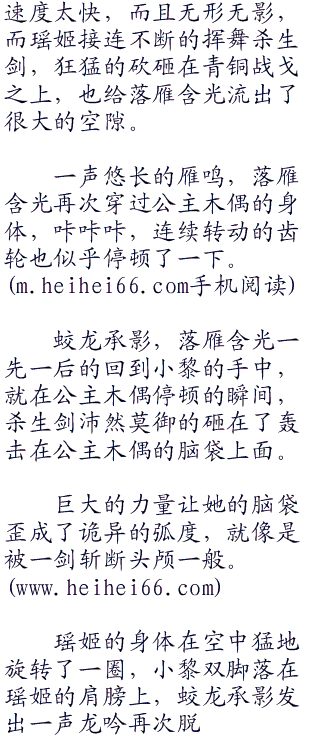 速度太快，而且无形无影，
而瑶姬接连不断的挥舞杀生
剑，狂猛的砍砸在青铜战戈
之上，也给落雁含光流出了
很大的空隙。
一声悠长的雁鸣，落雁
含光再次穿过公主木偶的身
体，咔咔咔，连续转动的齿
轮也似乎停顿了一下。
(m.heihei66.com手机阅读)
蛟龙承影，落雁含光一
先一后的回到小黎的手中，
就在公主木偶停顿的瞬间，
杀生剑沛然莫御的砸在了轰
击在公主木偶的脑袋上面。
巨大的力量让她的脑袋
歪成了诡异的弧度，就像是
被一剑斩断头颅一般。
(www.heihei66.com)
瑶姬的身体在空中猛地
旋转了一圈，小黎双脚落在
瑶姬的肩膀上，蛟龙承影发
出一声龙吟再次脱